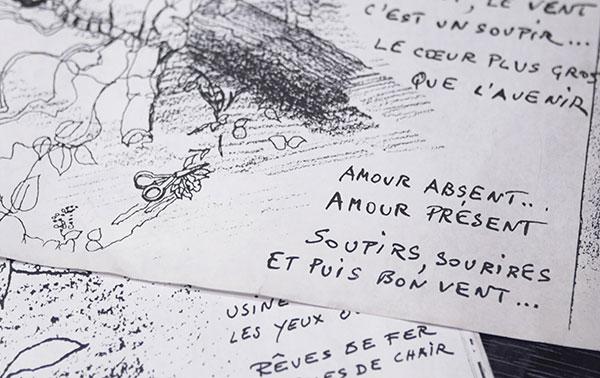 , LE VENT
C'EST UN SOUPIR...
LE CŒUR PLUS GROS
QUE L'AVENIR
AMOUR ABSENT...
AMOUR PRÉSENT
SOUPIRS, SOURIRES
ET PUIS BON VENT...
USINE
LES YEUX
RÊVES DE FER
DE CHAIR